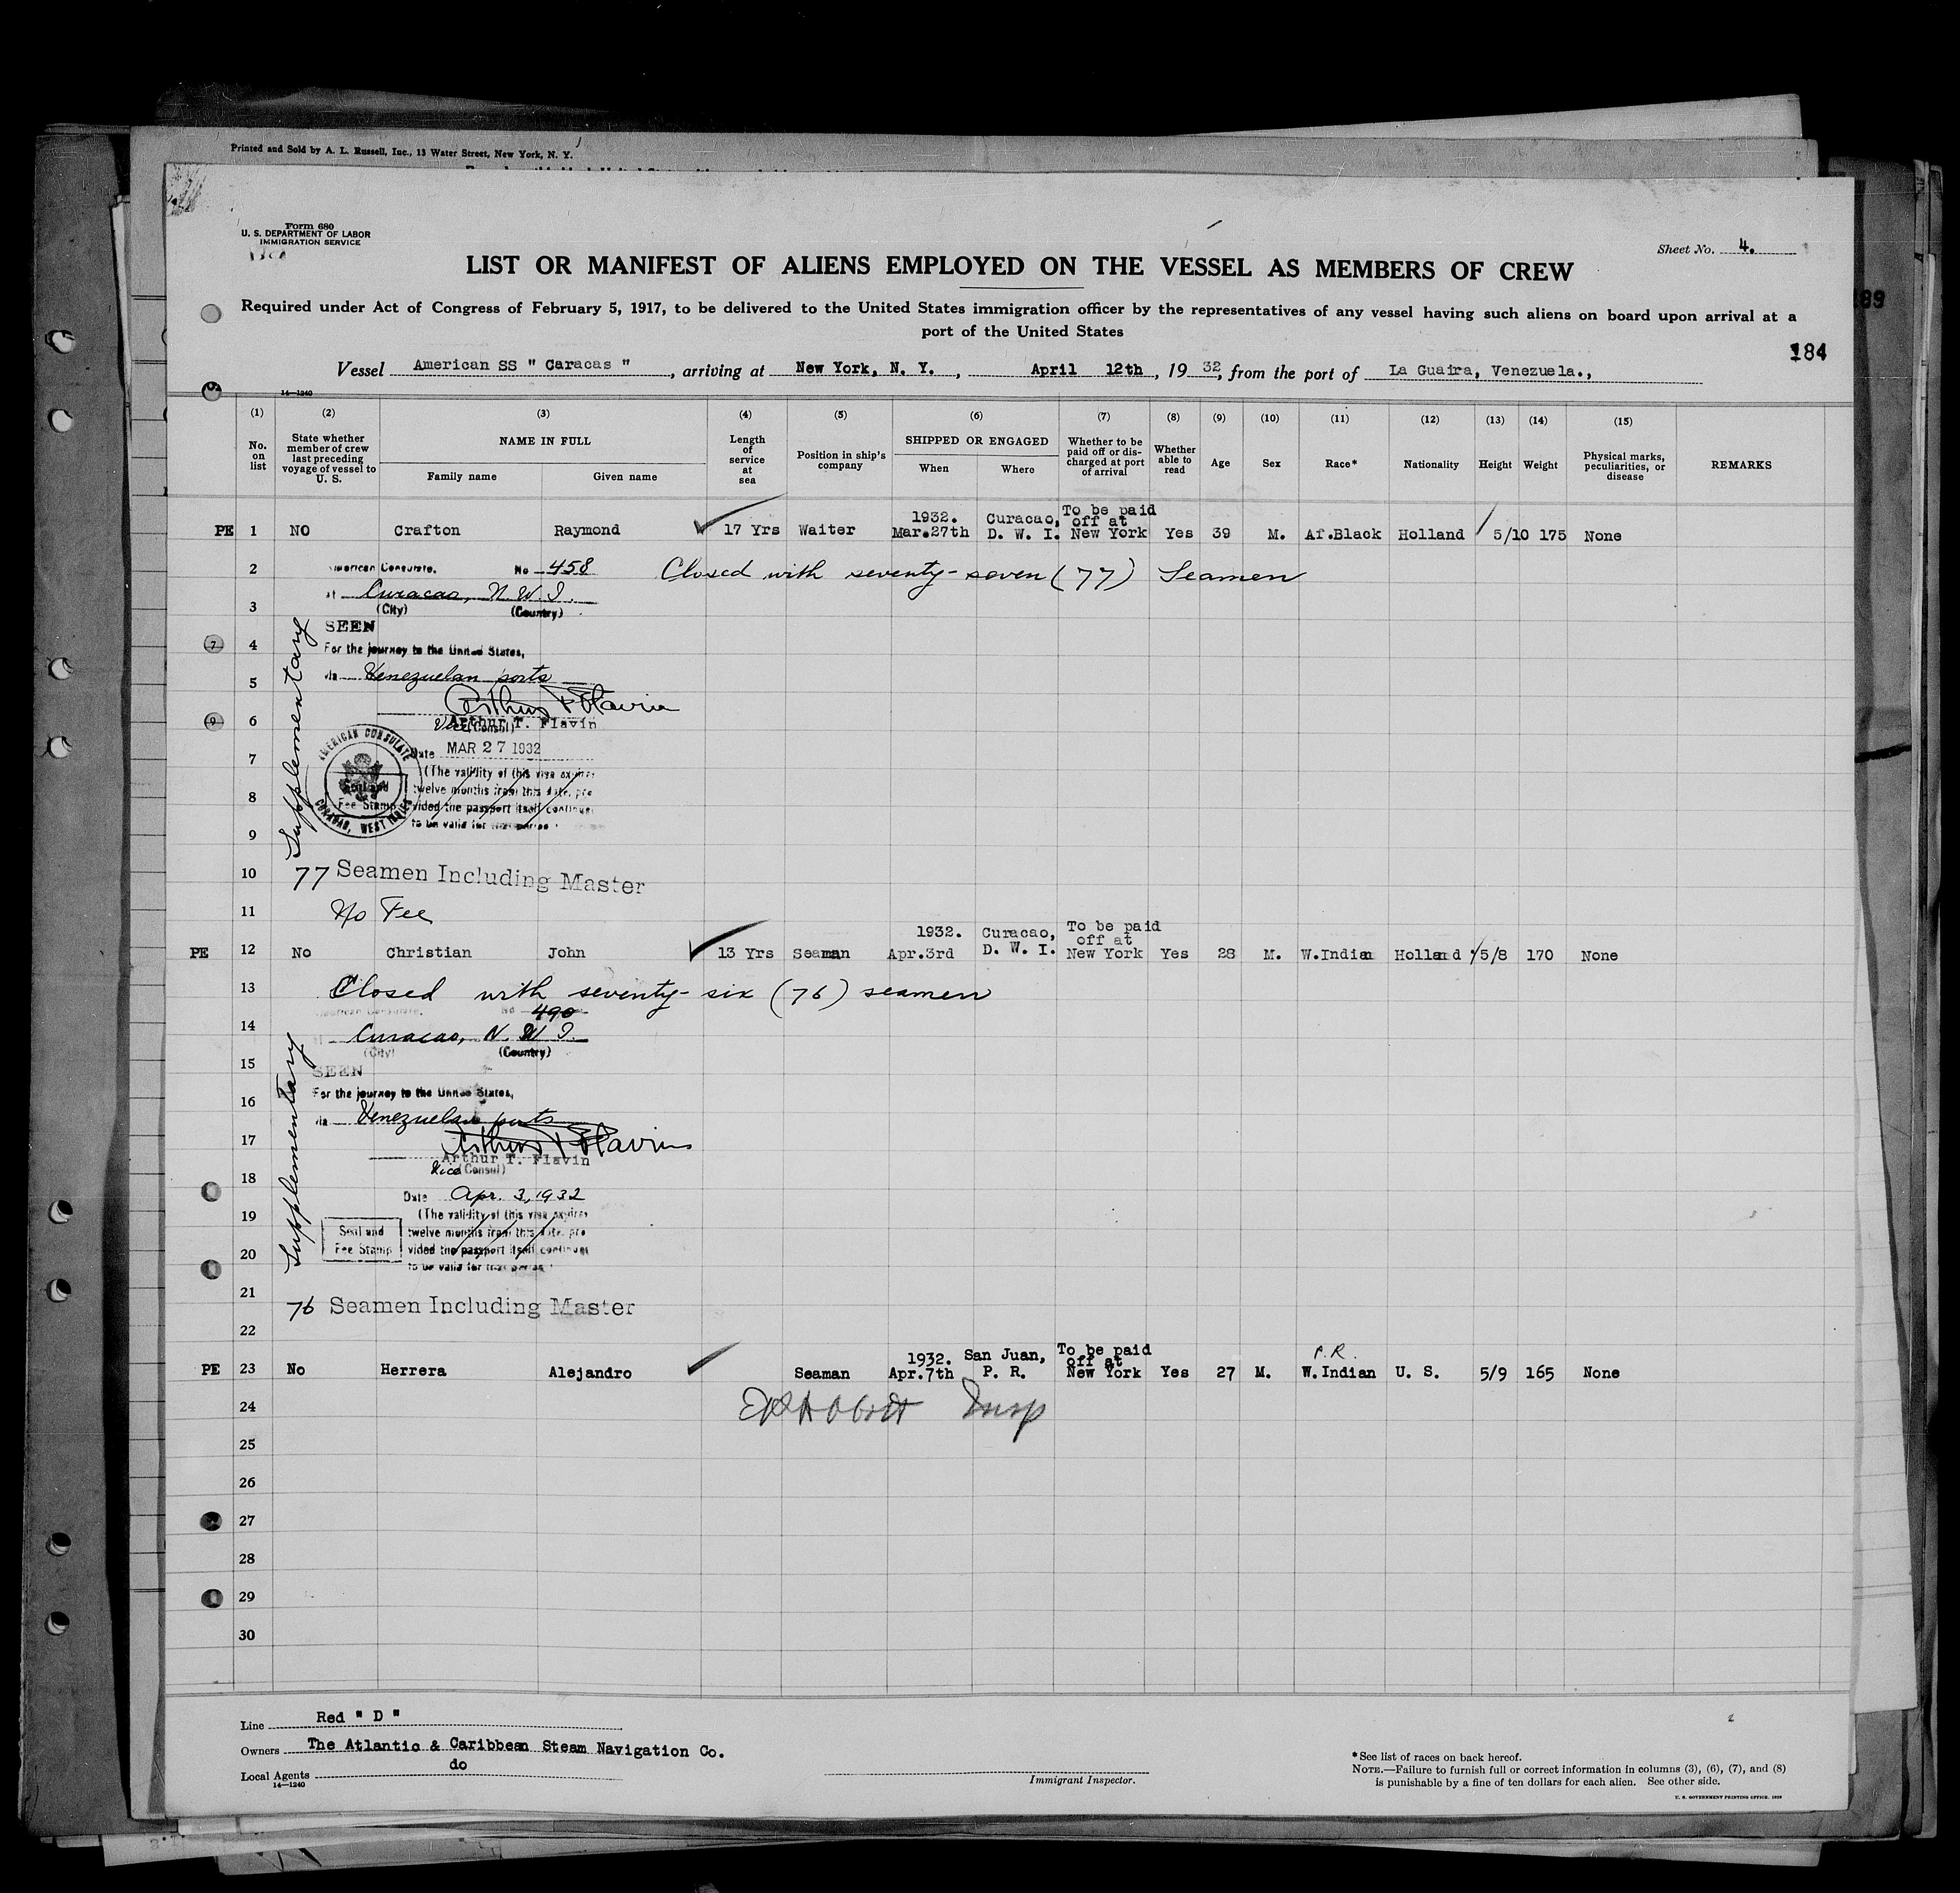 Printed and Sold by A. L. Russell, Inc., 13 Water Street, New York, N. Y.
Form 680
U. S. DEPARTMENT OF LABOR
IMMIGRATION SERVICE
Sheet No. 4.
LIST OR MANIFEST OF ALIENS EMPLOYED ON THE VESSEL AS MEMBERS OF CREW
89
Required under Act of Congress of February 5, 1917, to be delivered to the United States immigration officer by the representatives of any vessel having such aliens on board upon arrival at a
port of the United States
184
Vessel American SS " Caracas " , arriving at New York, N. Y. , April 12th , 19 32, from the port of La Guaira, Venezuela.,
14—1240
(1) (2) (3) (4) (5) (6) (7) (8) (9) (10) (11) (12) (13) (14) (15)
No. on list
State whether member of crew last preceding voyage of vessel to U. S.
NAME IN FULL
Family name
Given name
Length of service at sea
Position in ship's company
SHIPPED OR ENGAGED
When
Where
Whether to be paid off or discharged at port of arrival
Whether able to read
Age
Sex
Race*
Nationality
Height
Weight
Physical marks, peculiarities, or disease
REMARKS
PE 1 NO Crafton Raymond 17 Yrs Waiter 1932. Mar.27th Curacao, D. W. I. To be paid off at New York Yes 39 M. Af.Black Holland 5/10 175 None
2 American Consulate, No 458 Closed with seventy-seven (77) Seamen
at Curacao, N. W. I.
3 (City) (Country)
SEEN
4 For the journey to the United States,
5 via Venezuelan ports
Arthur T. Flavin
6 Arthur T. Flavin
Vice (Consul)
7 Date MAR 27 1932
AMERICAN CONSULATE
CURACAO, WEST INDIES
(The validity of this visa expires
8 Seal and twelve months from this date, pro
Fee Stamp vided the passport itself continues
9 to be valid for that period
Supplementary
10 77 Seamen Including Master
11 No Fee
PE 12 No Christian John 13 Yrs Seaman 1932. Apr.3rd Curacao, D. W. I. To be paid off at New York Yes 28 M. W.Indian Holland 5/8 170 None
13 Closed with seventy-six (76) seamen
American Consulate, No 490
14 Curacao, N. W. I.
(City) (Country)
15 SEEN
For the journey to the United States,
16 via Venezuelan ports
17 Arthur T. Flavin
Arthur T. Flavin
18 Vice (Consul)
Date Apr. 3, 1932
19 (The validity of this visa expires
Seal and twelve months from this date, pro
20 Fee Stamp vided the passport itself continues
to be valid for that period
Supplementary
21 76 Seamen Including Master
22
PE 23 No Herrera Alejandro Seaman 1932. Apr.7th San Juan, P. R. To be paid off at New York Yes 27 M. P.R. W.Indian U. S. 5/9 165 None
24 Insp
25
26
27
28
29
30
Line Red " D "
Owners The Atlantic & Caribbean Steam Navigation Co.
Local Agents do
14—1240
Immigrant Inspector.
*See list of races on back hereof.
NOTE.—Failure to furnish full or correct information in columns (3), (6), (7), and (8)
is punishable by a fine of ten dollars for each alien. See other side.
U. S. GOVERNMENT PRINTING OFFICE.